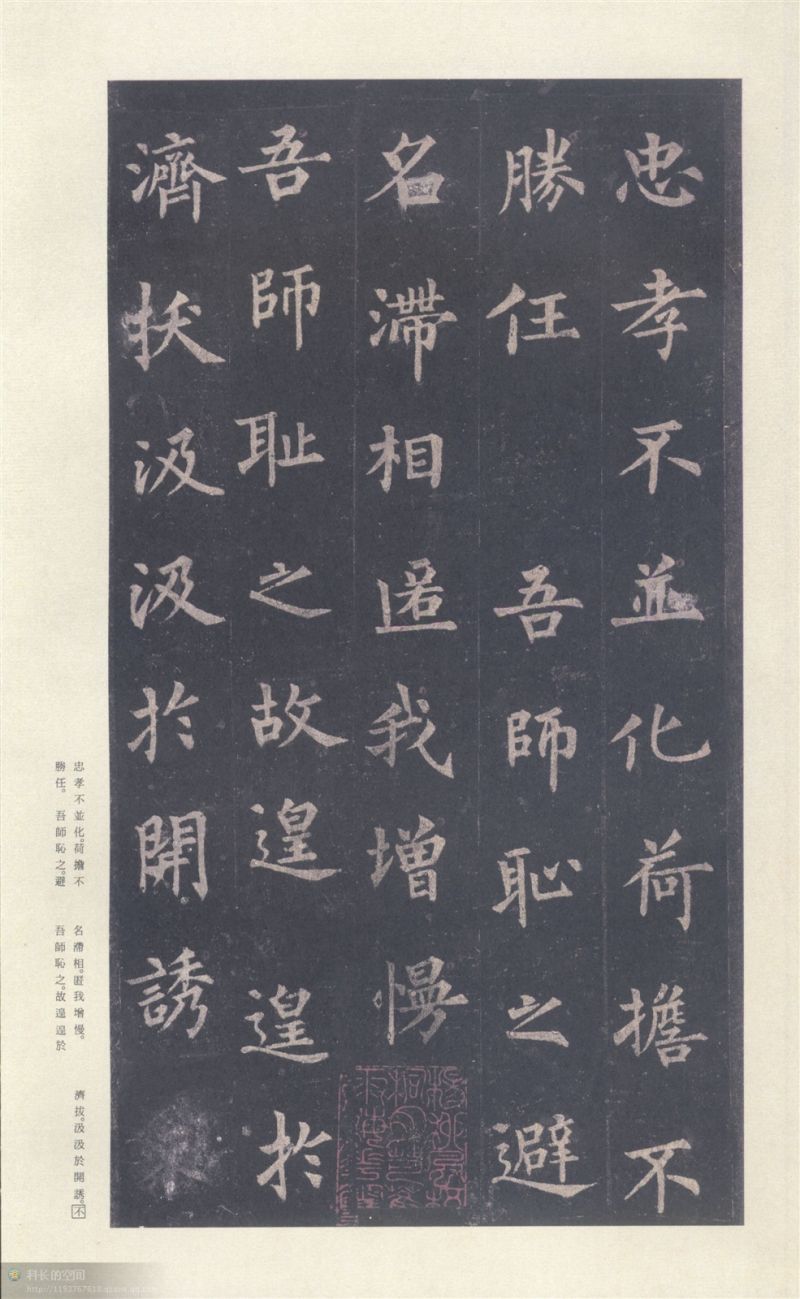 忠孝不並化荷擔不
勝任 吾師恥之避
名滯相匿我增慢
吾師耻之故遑遑於
濟拔汲汲於開誘
忠孝不並化。荷擔不
勝任。 吾師恥之。避
名滯相。匿我增慢。
吾師恥之。故遑遑於
濟拔。汲汲於開誘。不
科长的空间